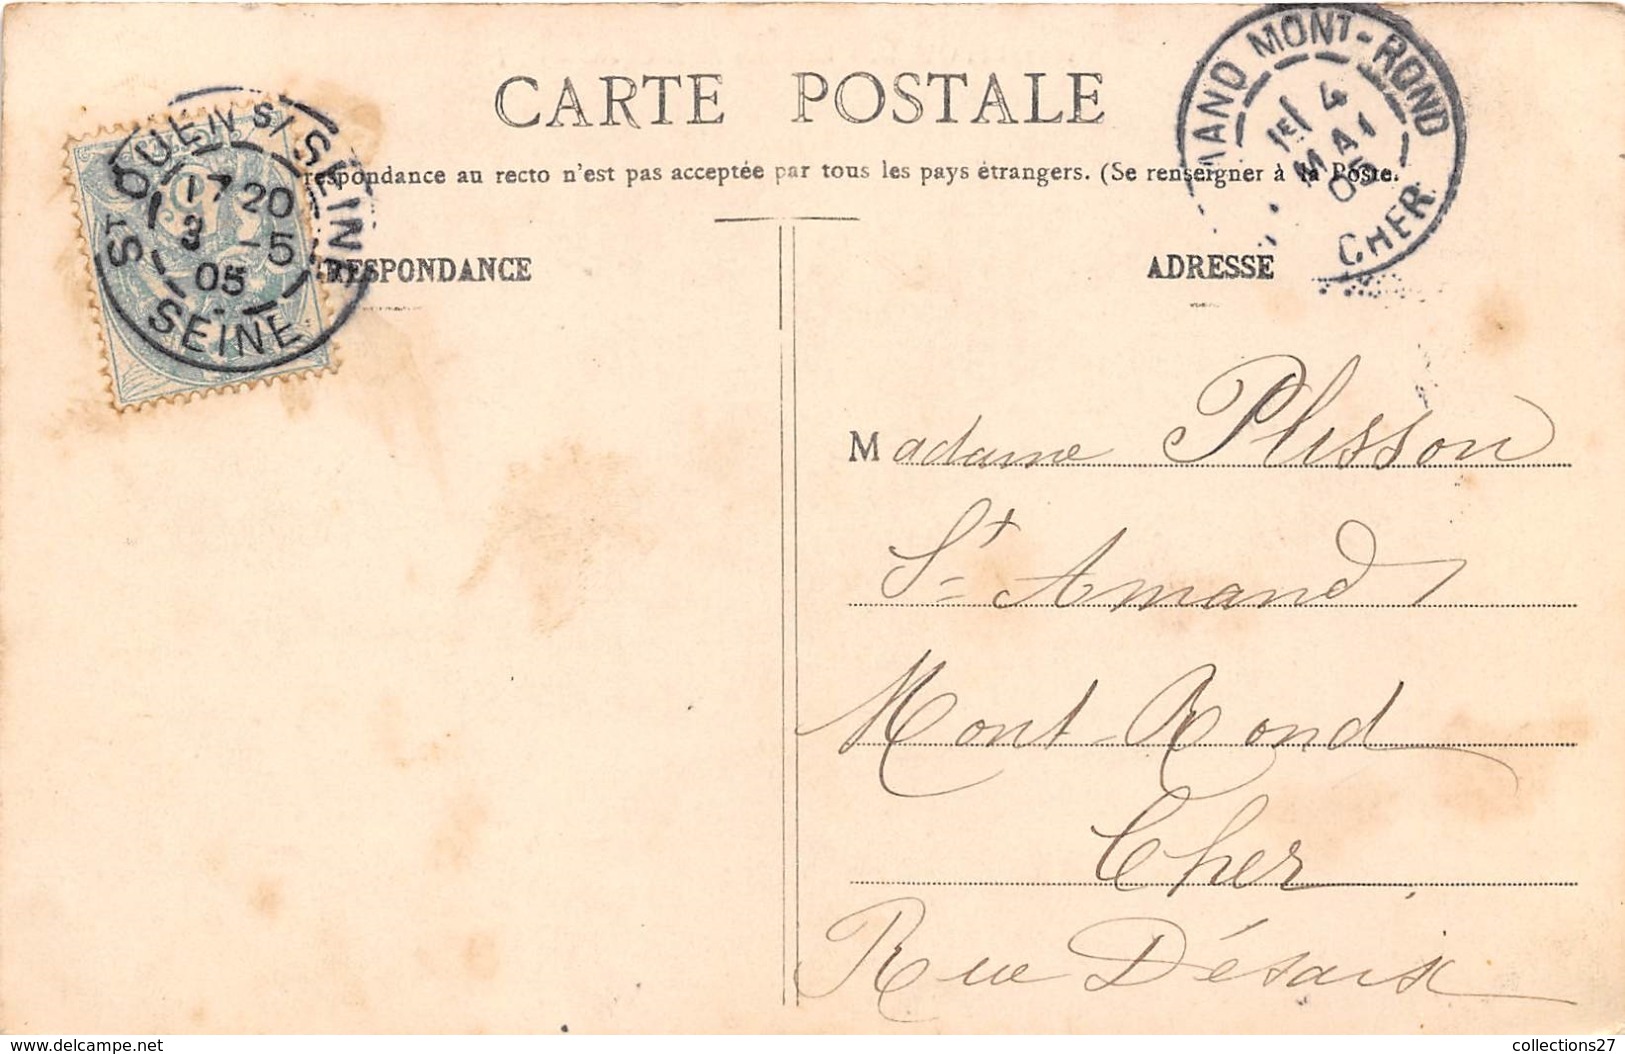 CARTE POSTALE
respondance au recto n'est pas acceptée par tous les pays étrangers. (Se renseigner à la Poste.
RESPONDANCE
ADRESSE
ST OUEN S/ SEINE
17 20
3 -5
05
SEINE
MAND MONT-ROND
1E/ 4
MAI
05
CHER
Madame Plisson
St Amand
Mont-Rond
Cher
Rue Désaix
www.delcampe.net
collections27